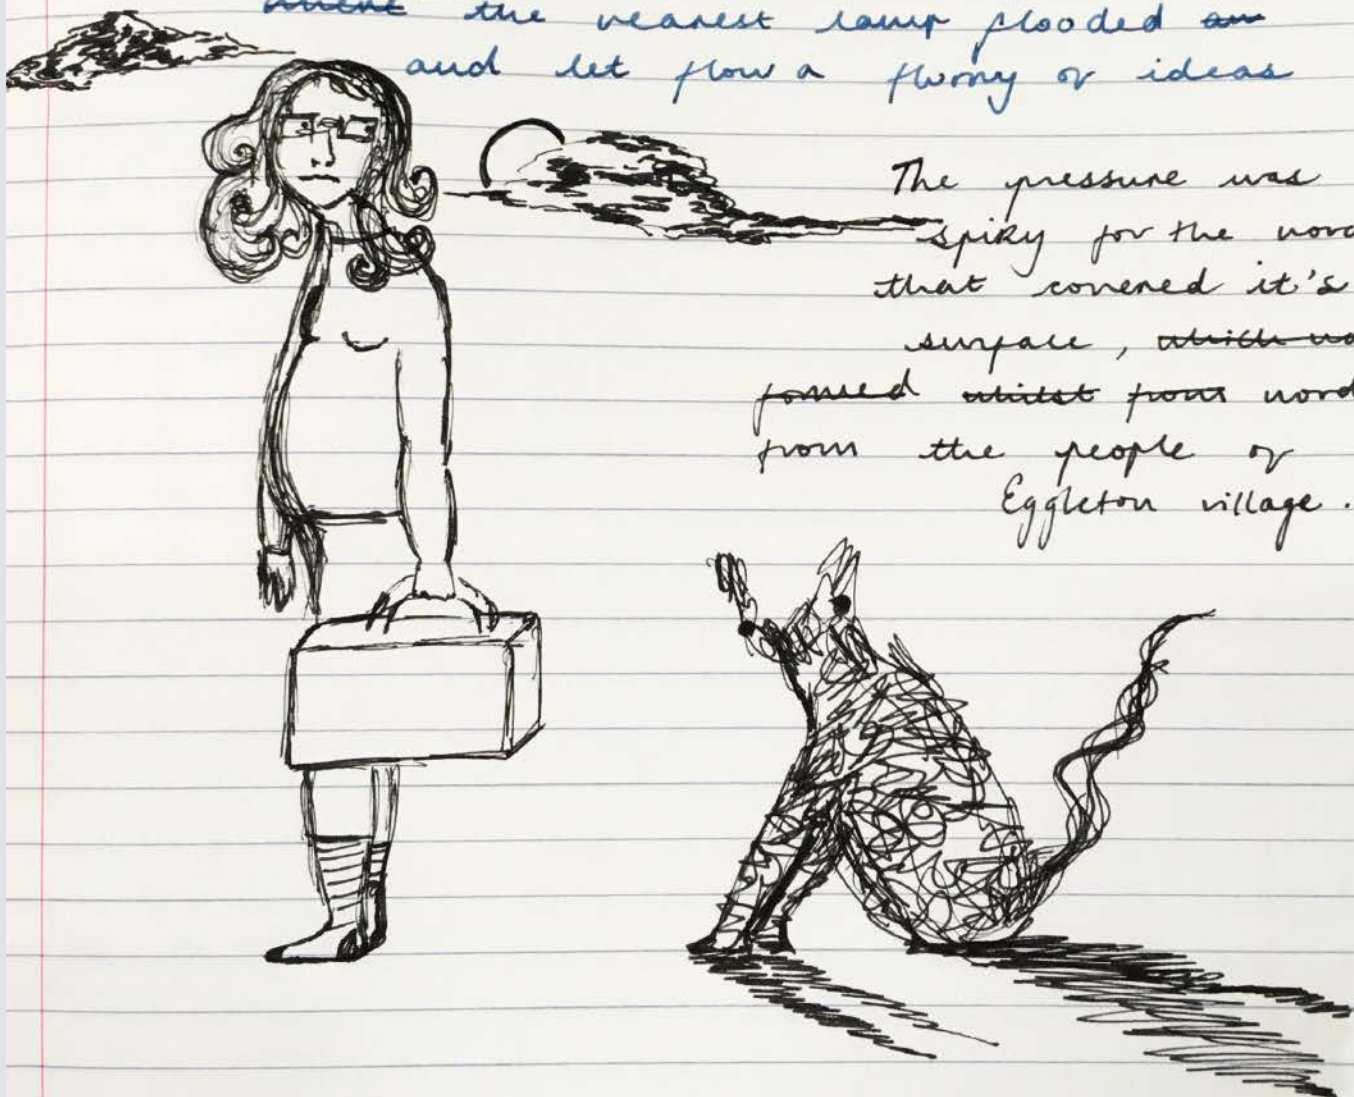 the nearest lamp flooded
and let flow a flurry of ideas
The pressure was
spiky for the word
that covered it's
surface, which wa
formed whilst from word
from the people of
Eggleton village.